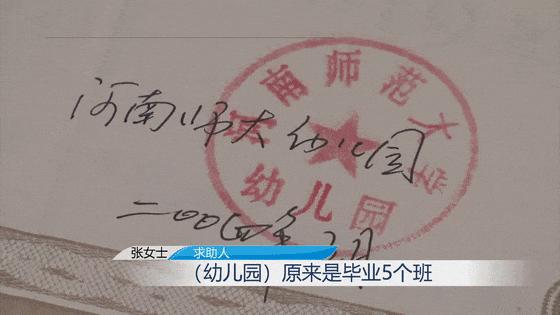 河南师范大学
幼儿园
河南师大幼儿园
二00四年
张女士 求助人
（幼儿园）原来是毕业5个班